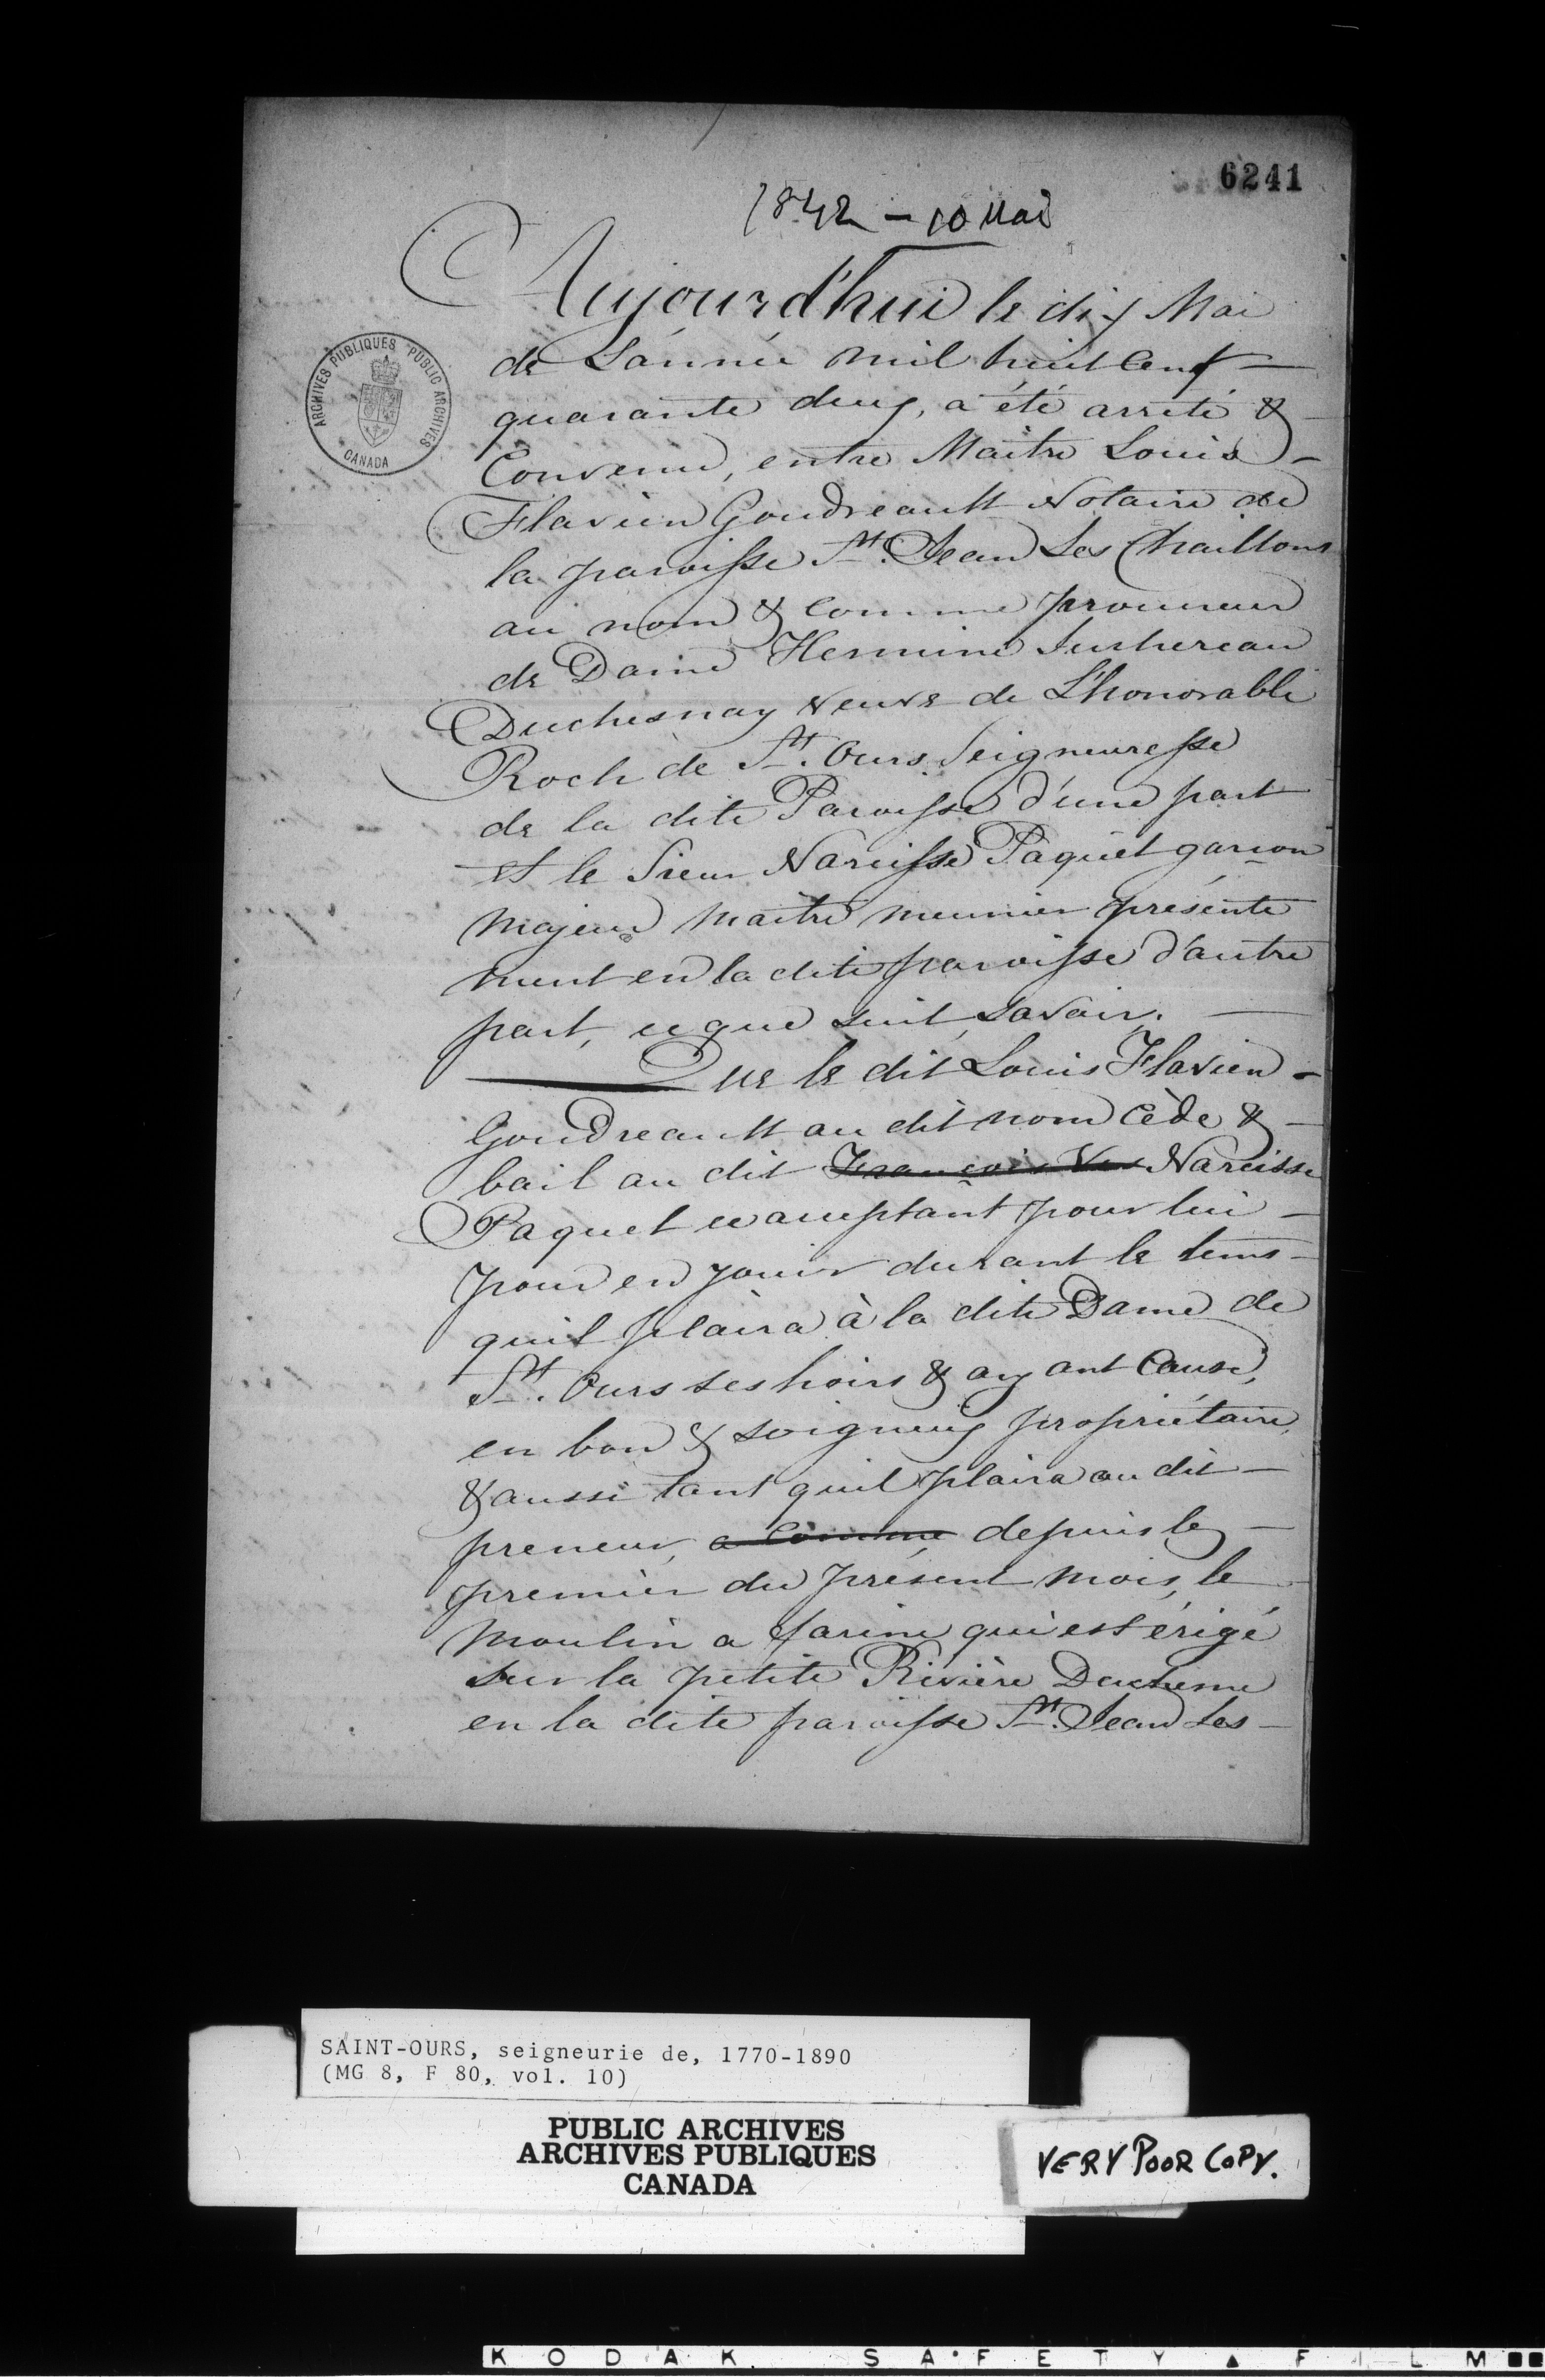 6241
1842 - 10 Mai
Aujourd'hui le dix Mai
de L'année mil huit Cent
quarante deux, a été arrêté &
Convenu, entre Maître Louis
Flavien Goudreault Notaire de
la paroisse St. Jean Les Chaillons
au nom & comme procureur
de Dame Hermine Juchereau
Duchesnay veuve de L'honorable
Roch de St. Ours Seigneuresse
de la dite Paroisse d'une part
et le Sieur Narcisse Paquet garçon
majeur maître meunier présente
ment en la dite paroisse d'autre
part, ce que suit, savoir.
Que le dit Louis Flavien
Goudreault au dit nom Cède &
bail au dit François Narcisse
Paquet ce acceptant pour lui
pour en jouir durant le tems
quil plaira à la dite Dame de
St. Ours ses hoirs & ayant Cause,
en bon & soigneux propriétaire,
& aussi tant quil plaira au dit
preneur, a Comme depuis le
premier du présent mois, le
moulin a farine qui est érigé
sur la petite Rivière Duchesne
en la dite paroisse St. Jean Les
ARCHIVES PUBLIQUES PUBLIC ARCHIVES
CANADA
SAINT-OURS, seigneurie de, 1770-1890
(MG 8, F 80, vol. 10)
PUBLIC ARCHIVES
ARCHIVES PUBLIQUES
CANADA
VERY POOR COPY.
KODAK SAFETY FILM